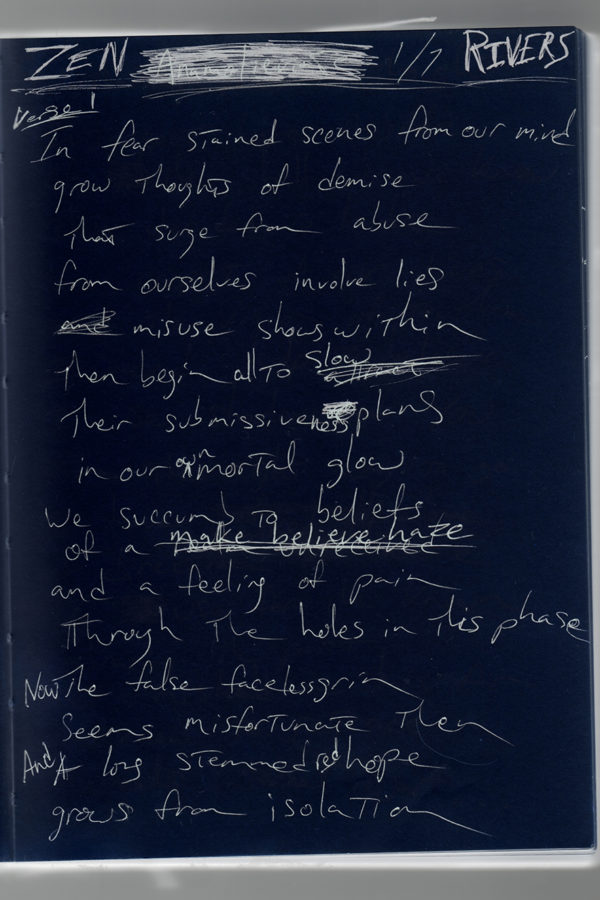 ZEN 1/7 RIVERS
Verse 1
In fear stained scenes from our mind
grow thoughts of demise
that surge from abuse
from ourselves involve lies
misuse shows within
then begin all to slow
their submissiveness plans
in our own mortal glow
We succumb to beliefs
of a make believe haze
and a feeling of pain
Through the holes in this phase
Now the false facelessgrin
Seems misfortunate then
And A long stemmed red hope
grows from isolation